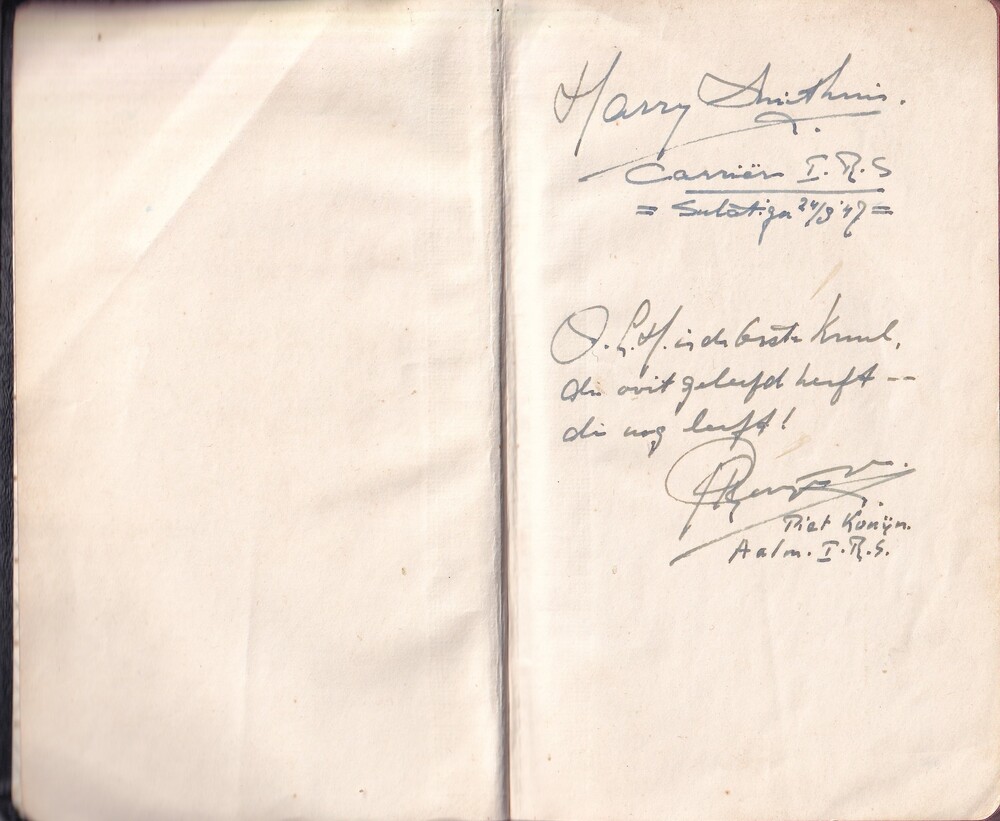 Harry Smithuis.
Carriër I.R.S
= Salatiga 24/3 '47 =
O.L.H. is de beste Knul,
die ooit geleefd heeft --
die nog leeft!
Piet Konijn.
Aalm. I.R.S.